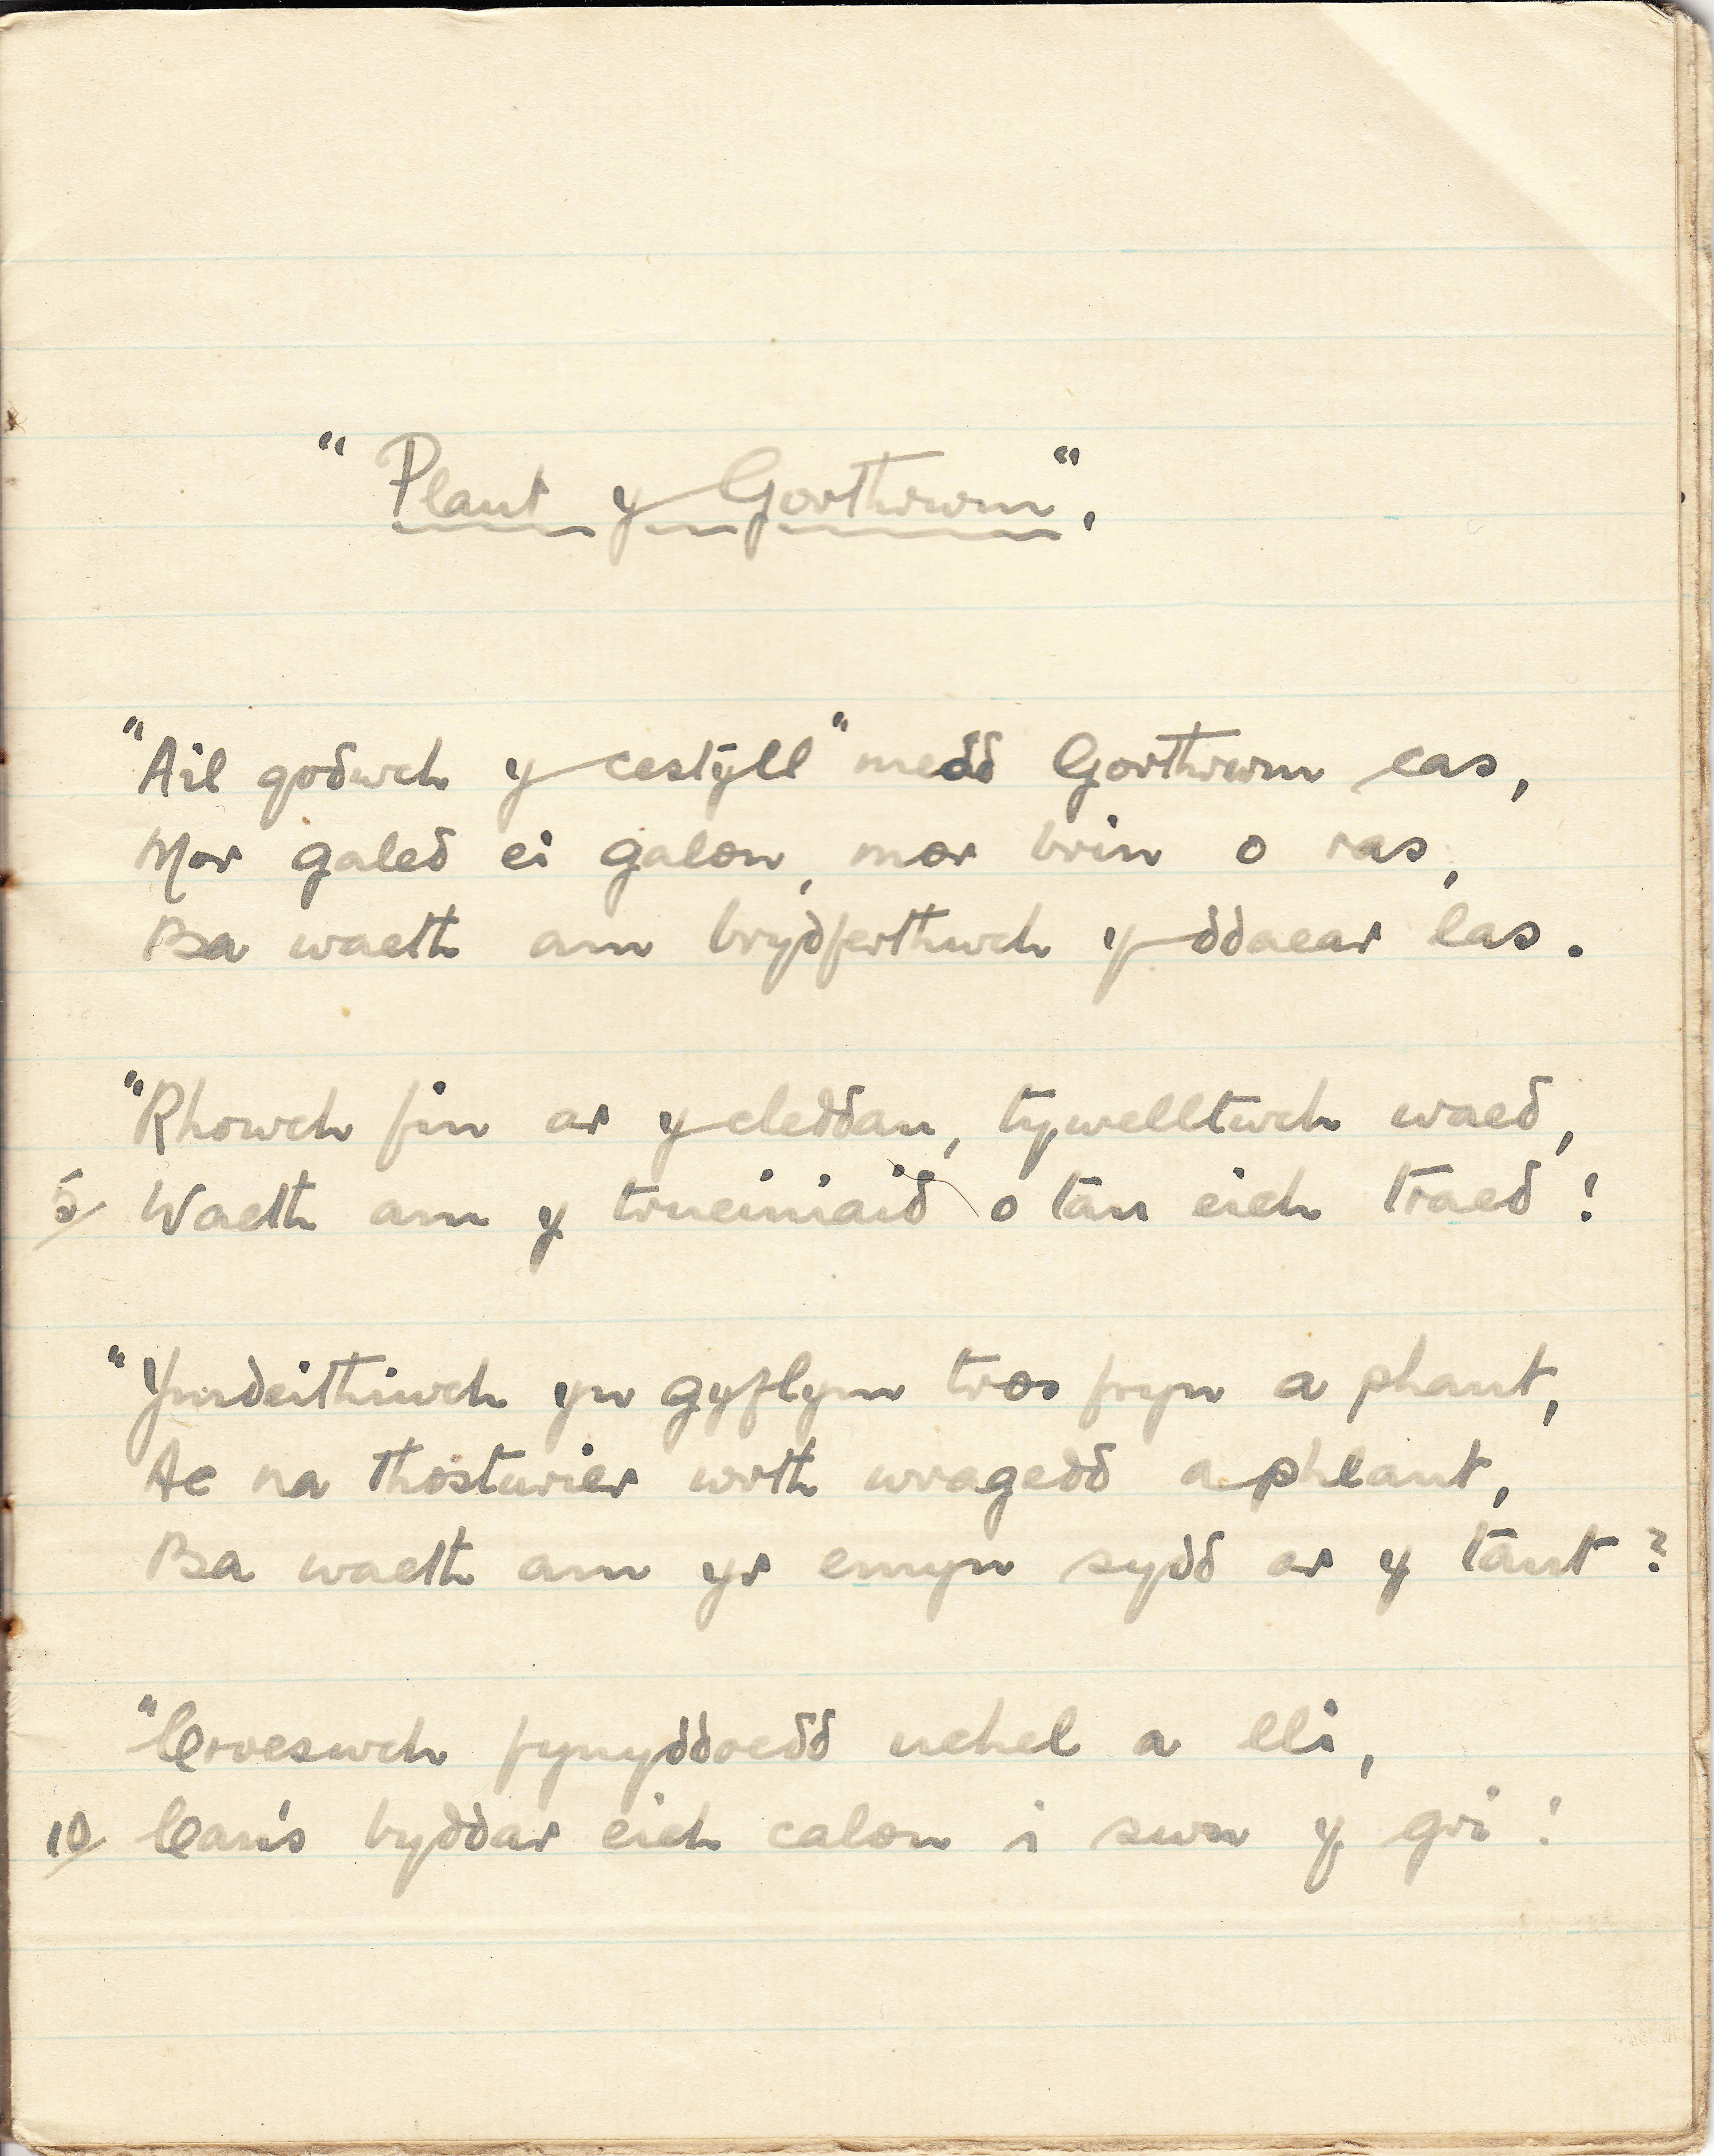 "Plant y Gorthrwm".
"Ail godwch y cestyll" medd Gorthrwm cas,
Mor galed ei galon, mor brin o ras,
Ba waeth am brydferthwch y ddaear las.
"Rhowch fin ar y cleddau, tywelltwch waed,
5/ Waeth am y trueiniaid o tan eich traed!
"Ymdeithiwch yn gyflym tros fryn a phant,
Ac na thosturier wrth wragedd a phlant,
Ba waeth am yr emyn sydd ar y tant?
"Croeswch fynyddoedd uchel a lli,
10/ Can's byddar eich calon i swn y gri!